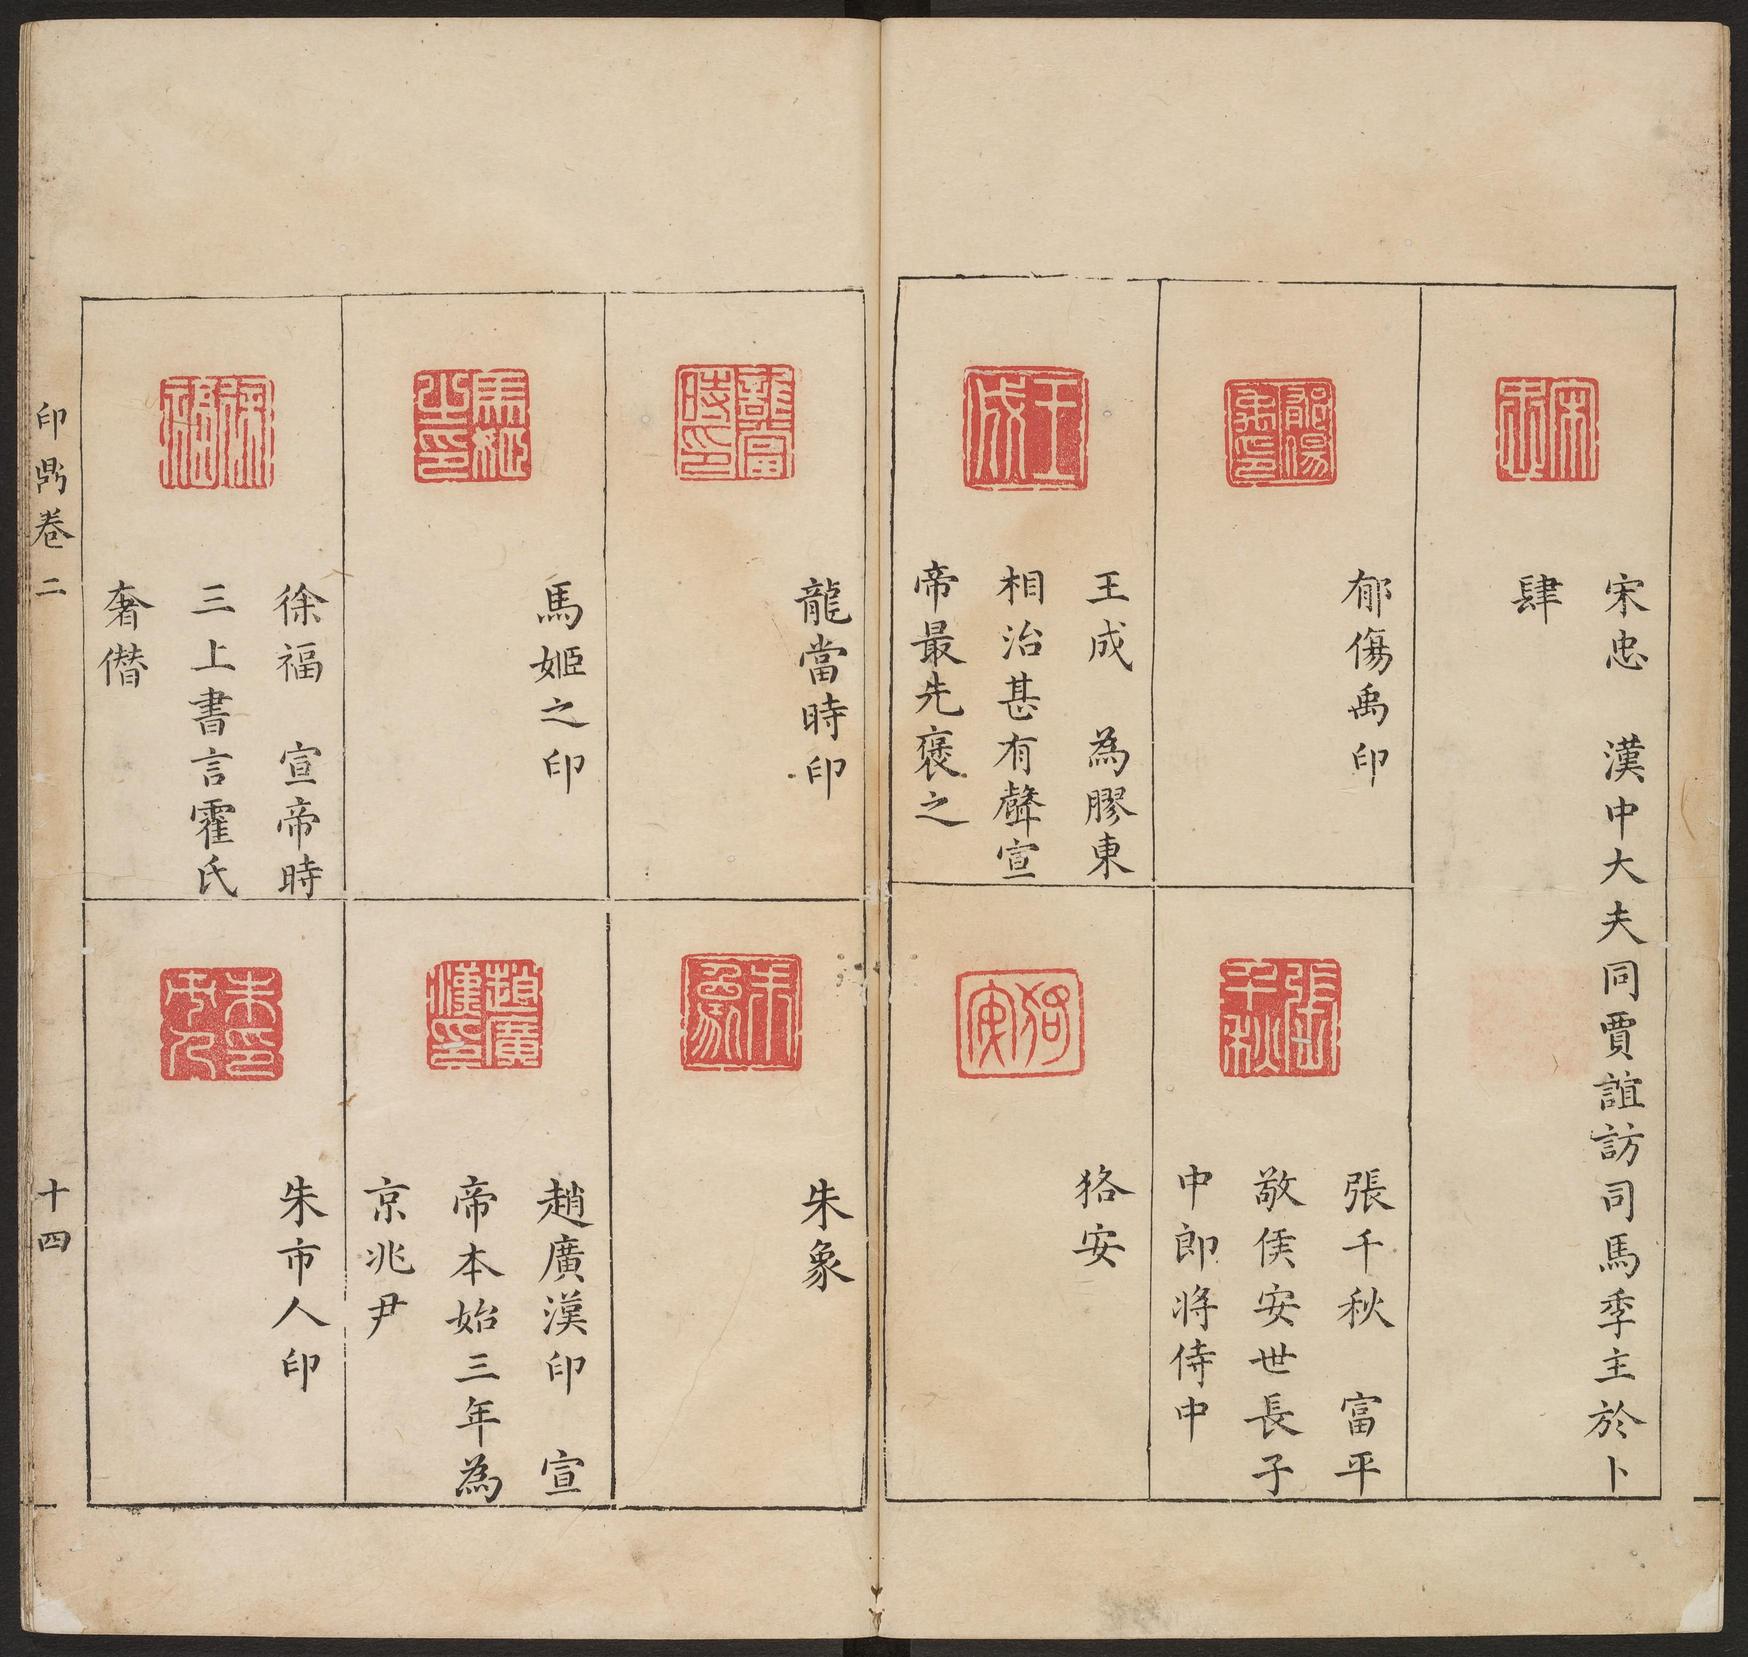 宋忠　漢中大夫同賈誼訪司馬季主於卜
肆
郁傷禹印
張千秋　富平
敬侯安世長子
中郎將侍中
王成　為膠東
相治甚有聲宣
帝最先褒之
狢安
龍當時印
朱象
馬姬之印
趙廣漢印　宣
帝本始三年為
京兆尹
徐福　宣帝時
三上書言霍氏
奢僭
朱市人印
印鼎卷二
十四